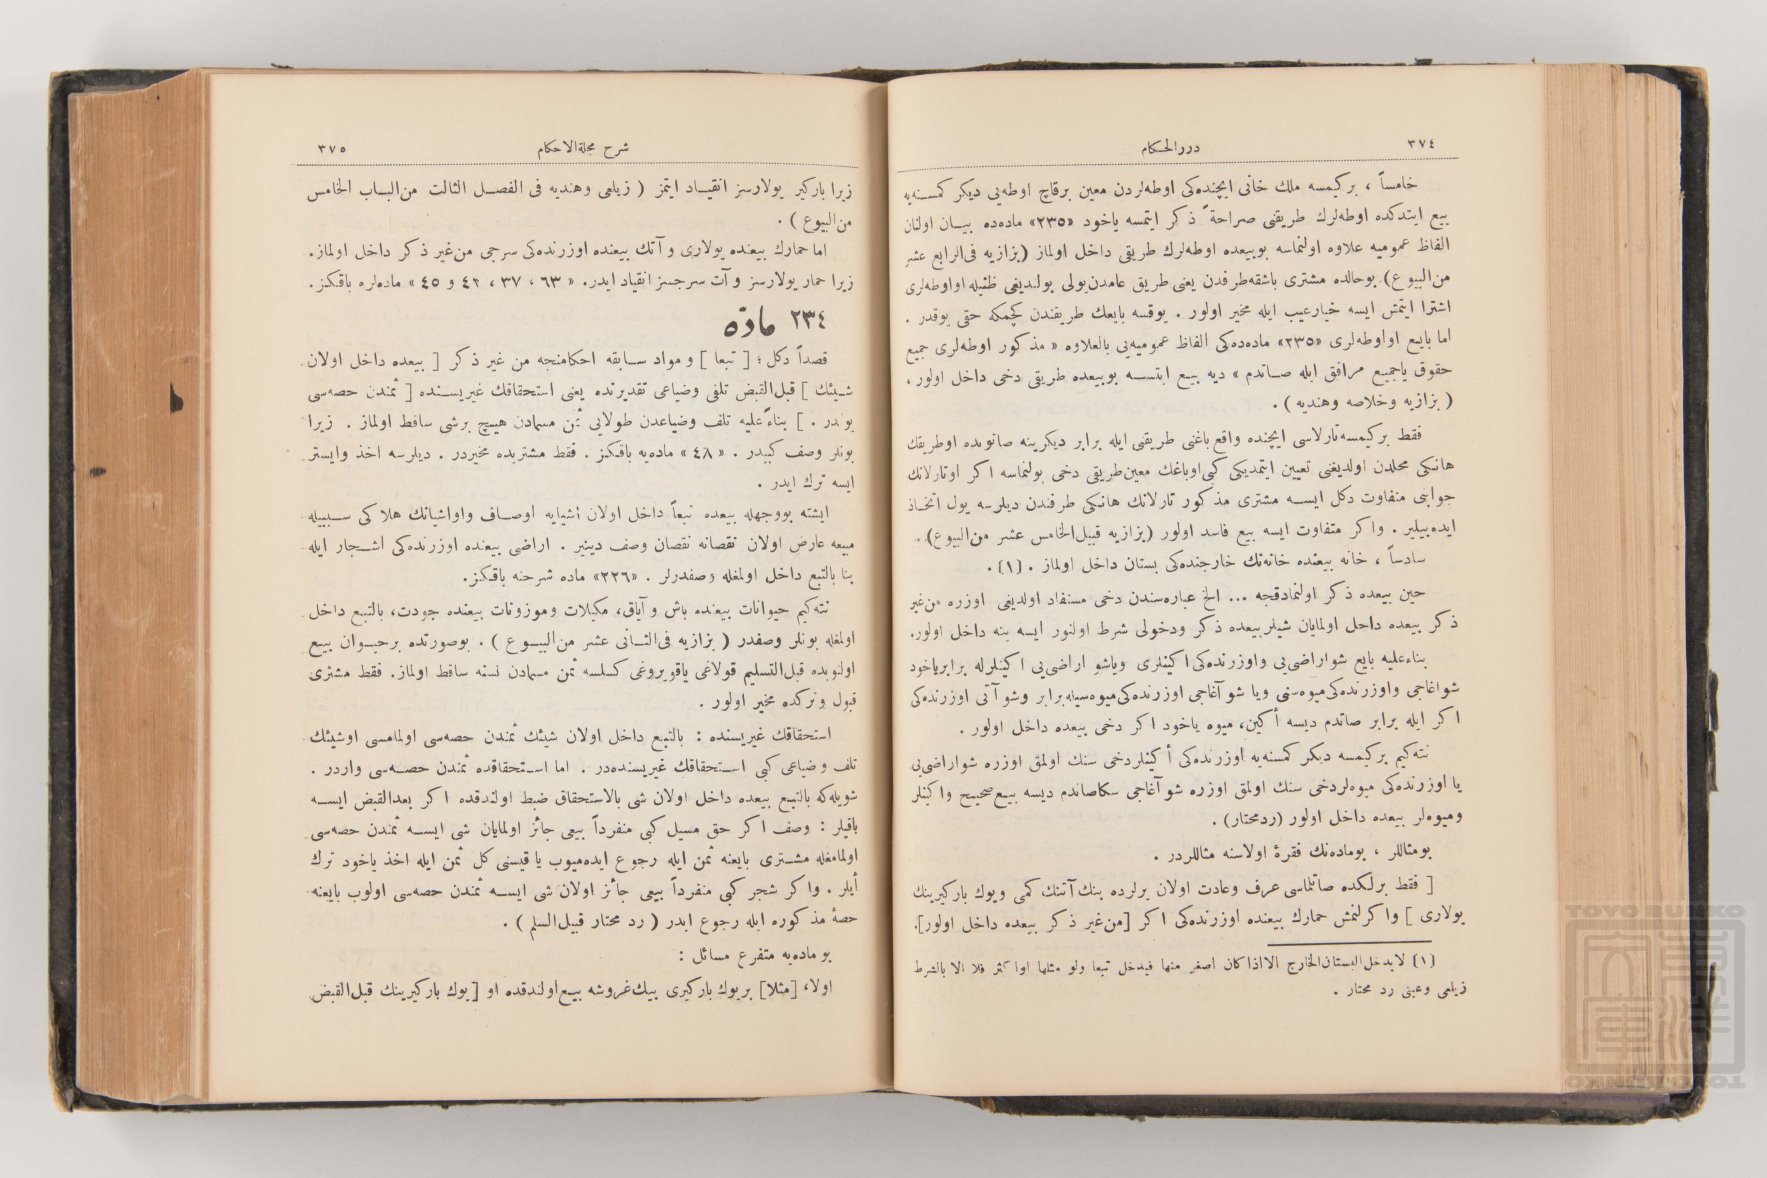 ٣٧٤
دررالحكام
خامساً ، بركيمسه ملك خانى ايچنده‌كى اوطه‌لردن معين برقاچ اوطه‌يى ديكر كمسنه‌يه
بيع ايتدكده اوطه‌لرك طريقنى صراحةً ذكر ايتمسه ياخود «٢٣٥» ماده‌ده بيان اولنان
الفاظ عموميه علاوه اولنماسه بوبيعده اوطه‌لرك طريقى داخل اولماز (بزازيه فى‌الرابع عشر
من‌البيوع). بوحالده مشترى باشقه‌طرفدن يعنى طريق عامدن‌يولى بولنديغى ظنيله اواوطه‌لرى
اشترا ايتمش ايسه خيارعيب ايله مخير اولور . يوقسه بايعك طريقندن كچمكه حقى يوقدر .
اما بايع اواوطه‌لرى «٢٣٥» ماده‌ده‌كى الفاظ عموميه‌يى بالعلاوه « مذكور اوطه‌لرى جميع
حقوق ياجميع مرافق ايله صاتدم » ديه بيع ايتسه بوبيعده طريقى دخى داخل اولور .
( بزازيه وخلاصه وهنديه ) .
فقط بركيمسه‌تارلاسى ايچنده واقع‌باغنى طريقى ايله برابر ديكرينه صاتوبده اوطريقك
هانكى محلدن اولديغنى تعيين ايتمديكى كبى‌اوباغك معين‌طريقى دخى بولنماسه اكر اوتارلانك
جوانبى متفاوت دكل ايسه مشترى مذكور تارلانك هانكى طرفندن ديلرسه يول اتخاذ
ايده‌بيلير . واكر متفاوت ايسه بيع فاسد اولور (بزازيه قبيل‌الخامس عشر من‌البيوع) .
سادساً ، خانه بيعنده خانه‌نك خارجنده‌كى بستان داخل اولماز . (١) .
حين بيعده ذكر اولنمادقجه ... الخ عباره‌سندن دخى مستفاد اولديغى اوزره من‌غير
ذكر بيعده داخل اولمايان شيلر بيعده ذكر ودخولى شرط اولنور ايسه ينه داخل اولور.
بناءعليه بايع شواراضى‌يى واوزرنده‌كى اكينلرى وياشو اراضى‌يى اكينلرله برابرياخود
شواغاجى واوزرنده‌كى‌ميوه‌سنى ويا شو آغاجى اوزرنده‌كى‌ميوه‌سيله‌برابر وشو آتى اوزرنده‌كى
اكر ايله برابر صاتدم ديسه أكين، ميوه ياخود اكر دخى بيعده داخل اولور .
نته‌كيم بركيمسه ديكر كمسنه‌يه اوزرنده‌كى أكينلردخى سنك اولمق اوزره شواراضى‌يى
يا اوزرنده‌كى ميوه‌لردخى سنك اولمق اوزره شو آغاجى سكاصاتدم ديسه بيع‌صحيح واكينلر
وميوه‌لر بيعده داخل اولور (ردمحتار) .
بومثاللر ، بوماده‌نك فقرهٔ اولاسنه مثاللردر .
[ فقط برلكده صاتلماسى عرف وعادت اولان يرلرده بنك آتنك كمى ويوك باركيرينك
يولارى ] واكرلنمش حمارك بيعنده اوزرنده‌كى اكر [من‌غير ذكر بيعده داخل اولور].
(١) لايدخل‌البستان‌الخارج الااذاكان اصغر منها فيدخل تبعا ولو مثلها اواكثر فلا الا بالشرط
زيلعى وعينى رد محتار .
شرح مجلةالاحكام
٣٧٥
زيرا باركير يولارسز انقياد ايتمز ( زيلعى وهنديه فى الفصل الثالث من‌الباب الخامس
من‌البيوع ) .
اما حمارك بيعنده يولارى و آتك بيعنده اوزرنده‌كى سرجى من‌غير ذكر داخل اولماز.
زيرا حمار يولارسز و آت سرجسز انقياد ايدر. « ٦٣ ، ٣٧ ، ٤٢ و ٤٥ » ماده‌لره باقكز.
٢٣٤ مادّه
قصداً دكل ؛ [ تبعا ] و مواد سابقه احكامنجه من غير ذكر [ بيعده داخل اولان
شيئك ] قبل‌القبض تلفى وضياعى تقديرنده يعنى استحقاقك غيريسنده [ ثمندن حصه‌سى
يوقدر . ] بناءًعليه تلف وضياعدن طولايى ثمن مسمادن هيچ برشى ساقط اولماز . زيرا
بونلر وصف كبيدر . « ٤٨ » ماده‌يه باقكز . فقط مشتريده مخيردر . ديلرسه اخذ وايستر
ايسه ترك ايدر .
ايشته بووجهله بيعده تبعاً داخل اولان أشيايه اوصاف واواشيانك هلاكى سببيله
مبيعه عارض اولان نقصانه نقصان وصف دينير . اراضى بيعنده اوزرنده‌كى اشجار ايله
بنا بالتبع داخل اولمغله وصفدرلر . «٢٢٦» ماده شرحنه باقكز.
نته‌كيم حيوانات بيعنده باش و آياق، مكيلات وموزونات بيعنده جودت، بالتبع داخل
اولمغله بونلر وصفدر ( بزازيه فى‌الثانى عشر من‌البيوع ) . بوصورتده برحيوان بيع
اولنوبده قبل‌التسليم قولاغى ياقويروغى كسلسه ثمن مسمادن نسنه ساقط اولماز. فقط مشترى
قبول وتركده مخير اولور .
استحقاقك غيريسنده : بالتبع داخل اولان شيئك ثمندن حصه‌سى اولمامسى اوشيئك
تلف وضياعى كبى استحقاقك غيريسنده‌در . اما استحقاقده ثمندن حصه‌سى واردر .
شويله‌كه بالتبع بيعده داخل اولان شى بالاستحقاق ضبط اولندقده اكر بعدالقبض ايسه
باقيلر : وصف اكر حق مسيل كبى منفرداً بيعى جائز اولمايان شى ايسه ثمندن حصه‌سى
اولمامغله مشترى بايعنه ثمن ايله رجوع ايده‌ميوب يا قيسنى كل ثمن ايله اخذ ياخود ترك
أيلر . واكر شجر كبى منفرداً بيعى جائز اولان شى ايسه ثمندن حصه‌سى اولوب بايعنه
حصهٔ مذكوره ايله رجوع ايدر ( رد محتار قبيل‌السلم ) .
بو ماده‌يه متفرع مسائل :
اولا، [مثلا] بريوك باركيرى بيك‌غروشه بيع‌اولندقده او [يوك باركيرينك قبل‌القبض
TOYO BUNKO